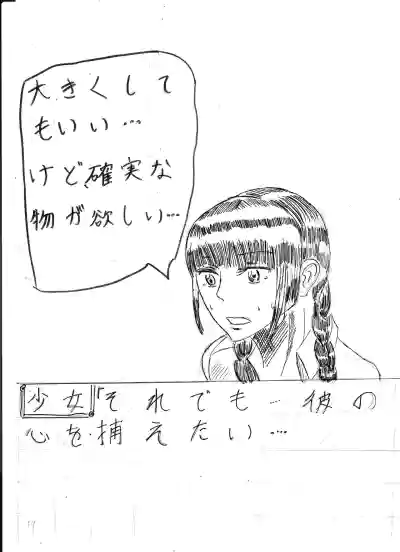 大きくして
もいい…
けど、確実な
物が欲しい…
少女「それでも…彼の
心を捕えたい…